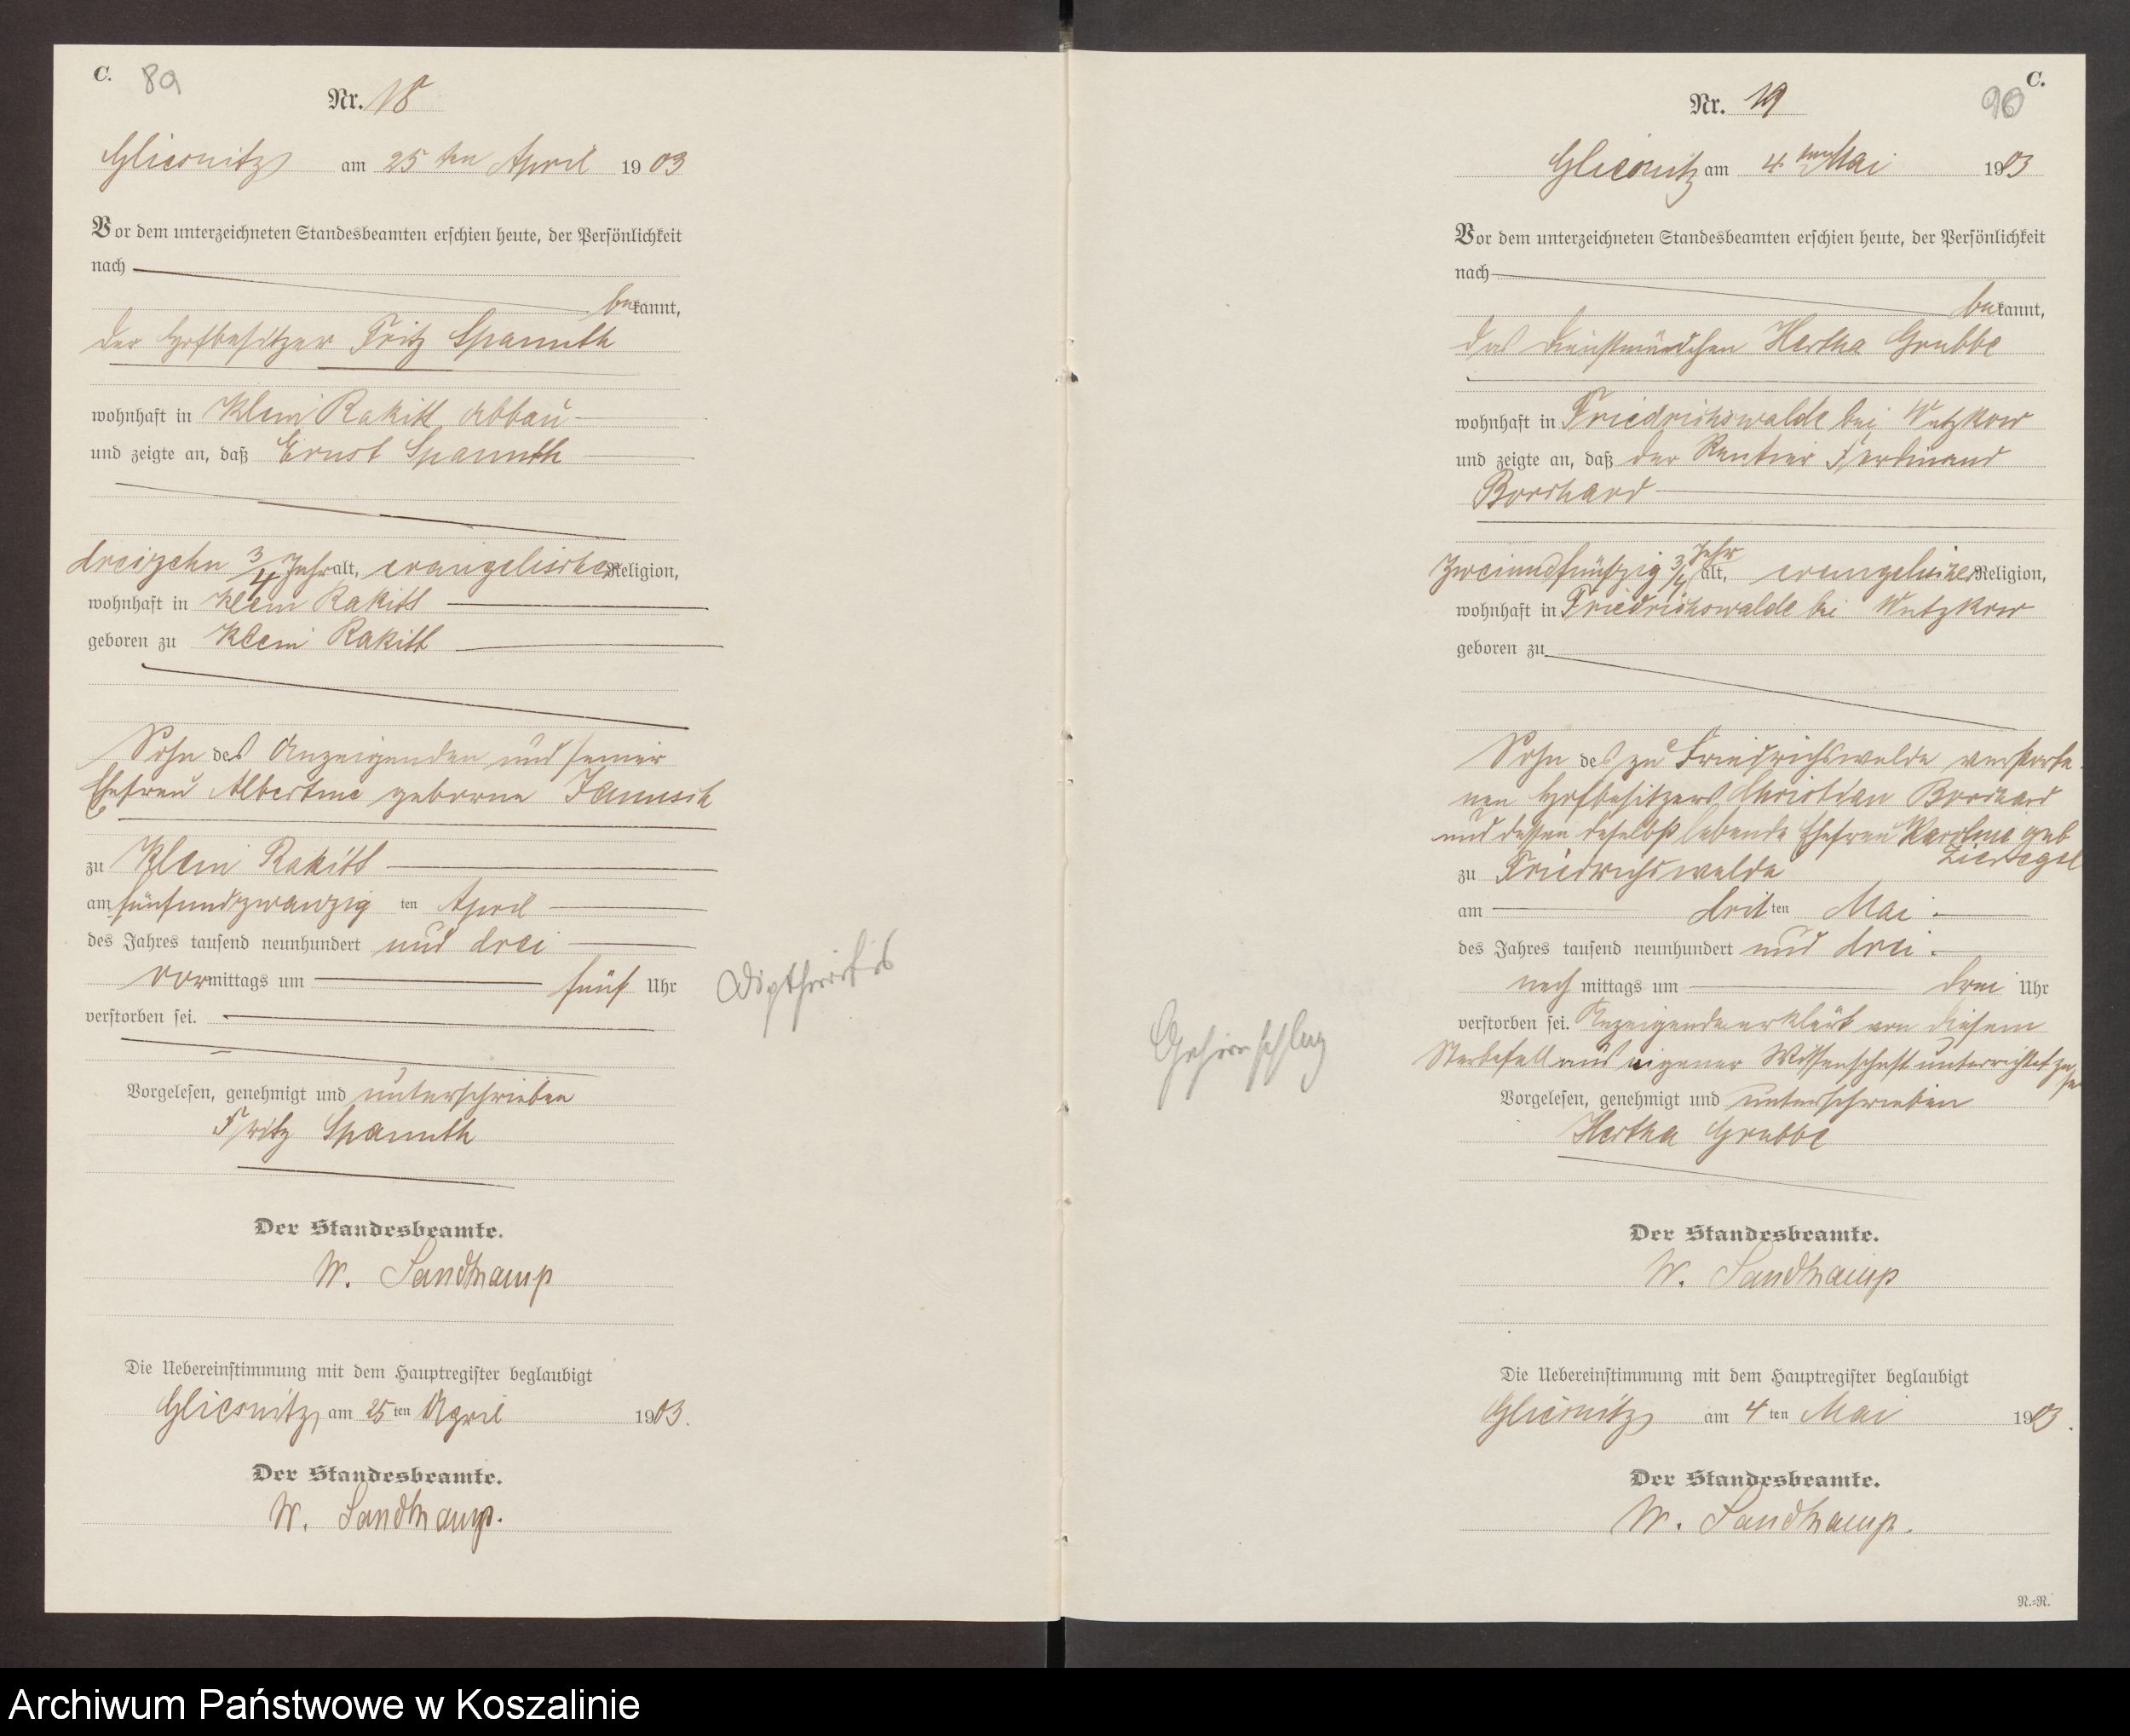 C. 89
Nr. 18
Gliesnitz am 25 ten April 1903
Vor dem unterzeichneten Standesbeamten erschien heute, der Persönlichkeit
nach
bekannt,
der Hofbesitzer Fritz Spannuth
wohnhaft in Klein Rakitt Abbau
und zeigte an, daß Ernst Spannuth
dreizehn 3/4 Jahr alt, evangelischer Religion,
wohnhaft in Klein Rakitt
geboren zu Klein Rakitt
Sohn des Anzeigenden und seiner
Ehefrau Albertine geborne Jannsch
zu Klein Rakitt
am fünfundzwanzig ten April
des Jahres tausend neunhundert und drei
vormittags um fünf Uhr
verstorben sei.
Diptheritis
Vorgelesen, genehmigt und unterschrieben
Fritz Spannuth
Der Standesbeamte.
W. Sandkamp
Die Uebereinstimmung mit dem Hauptregister beglaubigt
Gliesnitz, am 25 ten April 1903.
Der Standesbeamte.
W. Sandkamp.
C.
90
Nr. 19
Gliesnitz am 4 ten Mai 1903
Vor dem unterzeichneten Standesbeamten erschien heute, der Persönlichkeit
nach
bekannt,
das Dienstmädchen Hertha Grubbe
wohnhaft in Friedrichswalde bei Wutzkow
und zeigte an, daß der Rentier Ferdinand
Borchard
Zweiundfünfzig 3/4 Jahr alt, evangelischer Religion,
wohnhaft in Friedrichswalde bei Wutzkow
geboren zu
Sohn des zu Friedrichswalde verstorbe-
nen Hofbesitzers Christian Borchard
und dessen daselbst lebende Ehefrau Karoline geb
zu Friedrichswalde
am drit ten Mai.
des Jahres tausend neunhundert und drei.
nach mittags um drei Uhr
verstorben sei. Anzeigende erklärt von diesem
Sterbefall aus eigener Wissenschaft unterrichtet zu
Gehirnschlag
Vorgelesen, genehmigt und unterschrieben
Hertha Grubbe
Der Standesbeamte.
W. Sandkamp
Die Uebereinstimmung mit dem Hauptregister beglaubigt
Gliesnitz am 4 ten Mai 1903.
Der Standesbeamte.
W. Sandkamp.
N.=N.
Archiwum Państwowe w Koszalinie